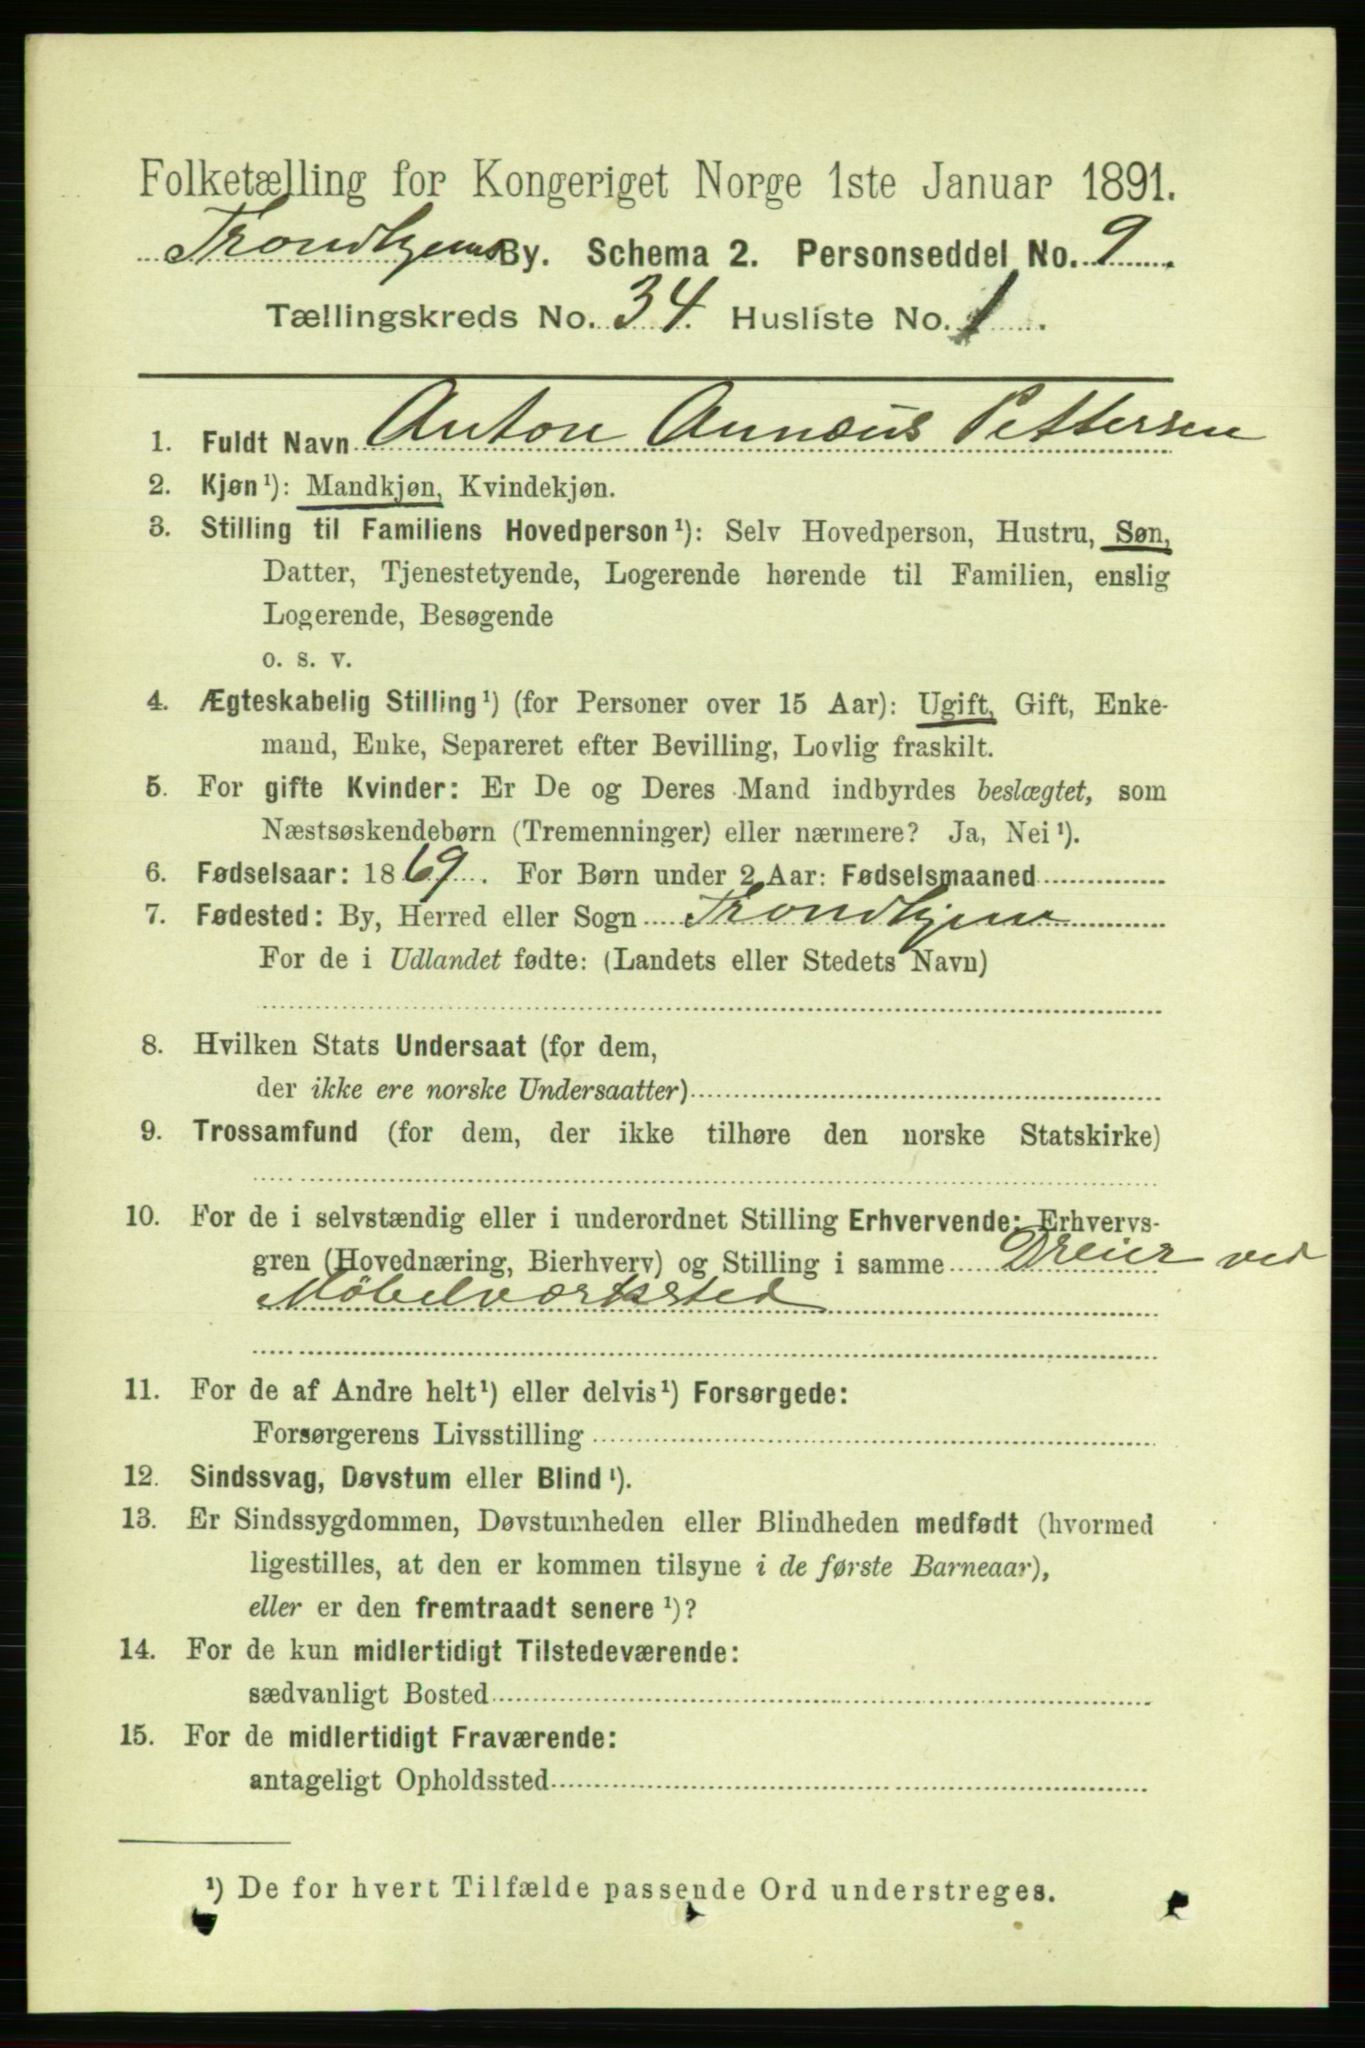 Folketælling for Kongeriget Norge 1ste Januar 1891.
Trondhjems By. Schema 2. Personseddel No. 9.
Tællingskreds No. 34. Husliste No. 1.
1. Fuldt Navn Anton Annæus Pettersen
2. Kjøn¹): Mandkjøn, Kvindekjøn.
3. Stilling til Familiens Hovedperson¹): Selv Hovedperson, Hustru, Søn,
Datter, Tjenestetyende, Logerende hørende til Familien, enslig
Logerende, Besøgende
o. s. v.
4. Ægteskabelig Stilling¹) (for Personer over 15 Aar): Ugift, Gift, Enke-
mand, Enke, Separeret efter Bevilling, Lovlig fraskilt.
5. For gifte Kvinder: Er De og Deres Mand indbyrdes beslægtet, som
Næstsøskendebørn (Tremenninger) eller nærmere? Ja, Nei¹).
6. Fødselsaar: 1869. For Børn under 2 Aar: Fødselsmaaned
7. Fødested: By, Herred eller Sogn Trondhjem
For de i Udlandet fødte: (Landets eller Stedets Navn)
8. Hvilken Stats Undersaat (for dem,
der ikke ere norske Undersaatter)
9. Trossamfund (for dem, der ikke tilhøre den norske Statskirke)
10. For de i selvstændig eller i underordnet Stilling Erhvervende: Erhvervs-
gren (Hovednæring, Bierhverv) og Stilling i samme Dreier ved
Møbelværksted
11. For de af Andre helt¹) eller delvis¹) Forsørgede:
Forsørgerens Livsstilling
12. Sindssvag, Døvstum eller Blind¹).
13. Er Sindssygdommen, Døvstumheden eller Blindheden medfødt (hvormed
ligestilles, at den er kommen tilsyne i de første Barneaar),
eller er den fremtraadt senere¹)?
14. For de kun midlertidigt Tilstedeværende:
sædvanligt Bosted
15. For de midlertidigt Fraværende:
antageligt Opholdssted
¹) De for hvert Tilfælde passende Ord understreges.